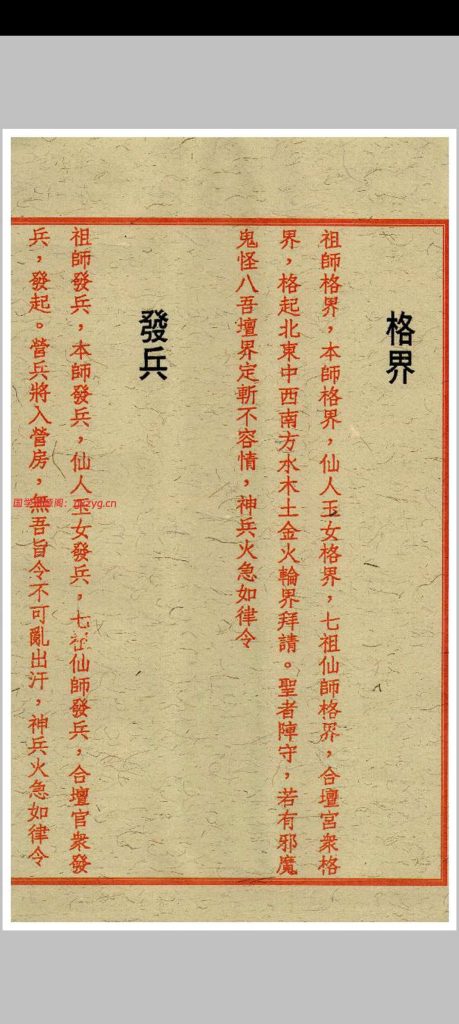 格界
祖師格界，本師格界，仙人玉女格界，七祖仙師格界，合壇宮衆格
界，格起北東中西南方水木土金火輪界拜請。聖者陣守，若有邪魔
鬼怪八吾壇界定斬不容情，神兵火急如律令
發兵
祖師發兵，本師發兵，仙人玉女發兵，七祖仙師發兵，合壇官衆發
兵，發起。營兵將入營房，無吾旨令不可亂出汗，神兵火急如律令
国学 zyg.cn